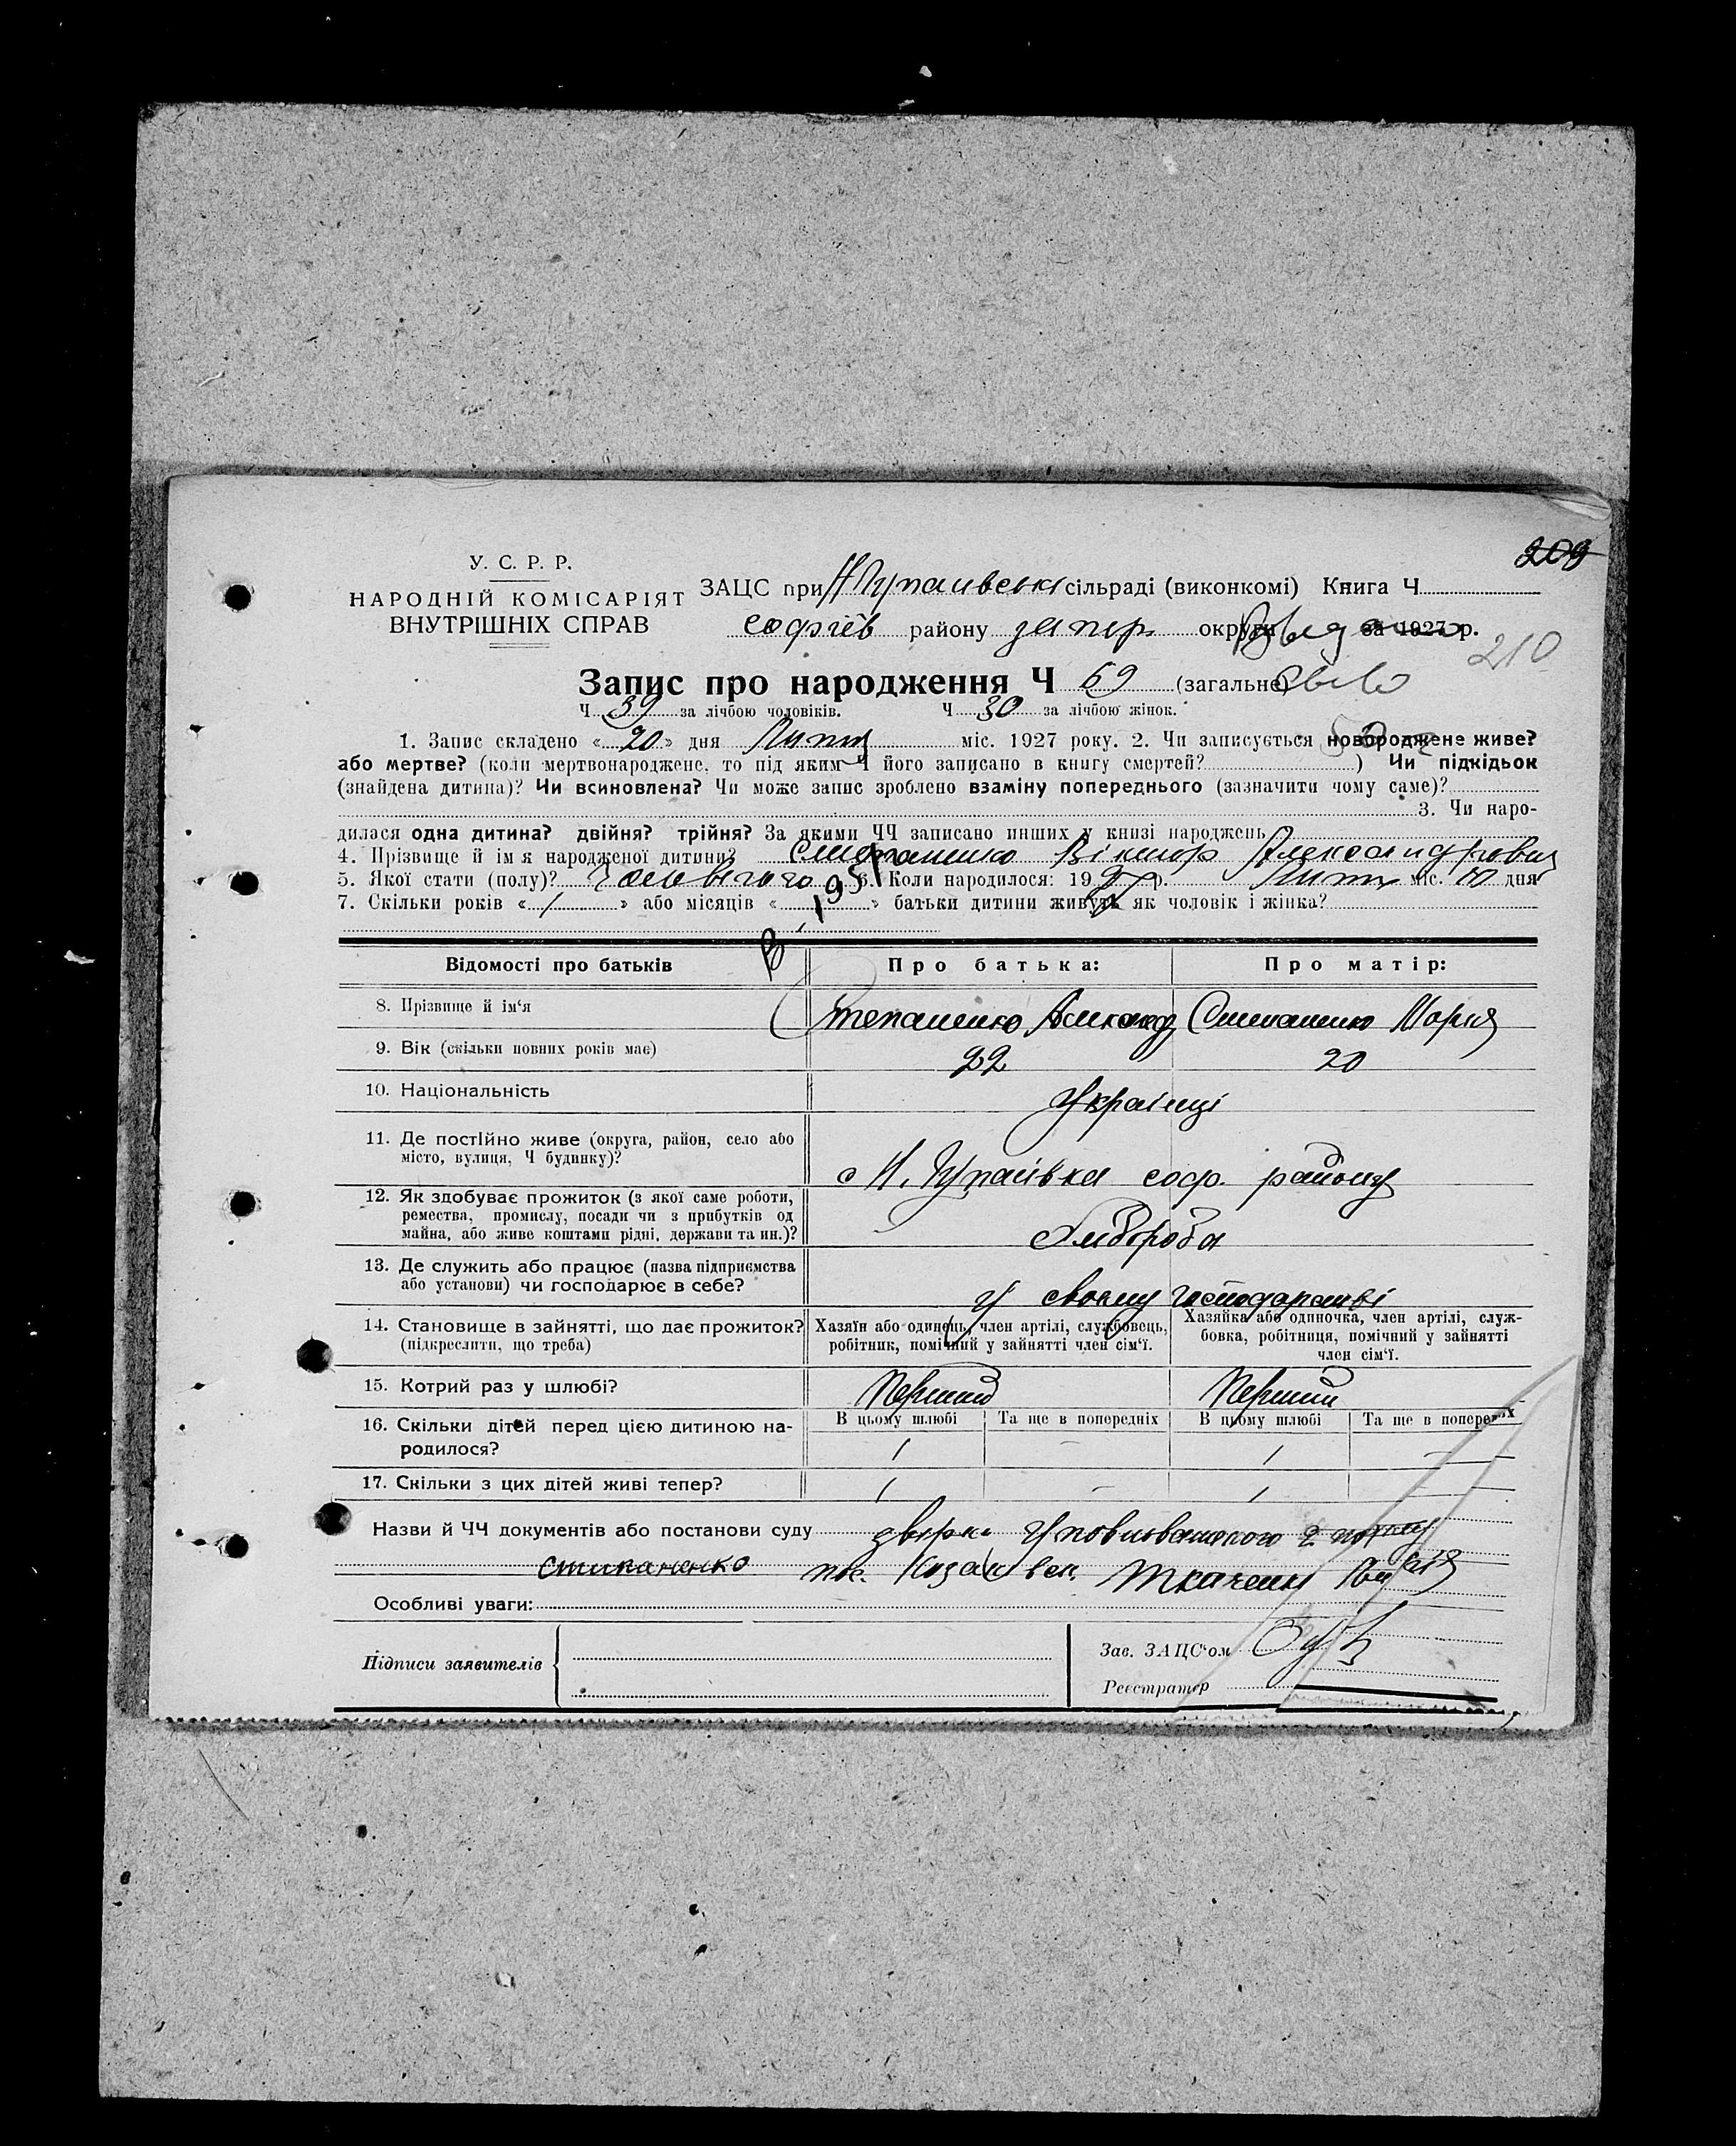 209
У. С. Р. Р.
НАРОДНІЙ КОМІСАРІЯТ
ВНУТРІШНІХ СПРАВ
ЗАЦС при сільраді (виконкомі) Книга Ч
софіїв району запор. округи за 1927 р.
210
Запис про народження Ч 69 (загальне)
Ч 39 за лічбою чоловіків. Ч 30 за лічбою жінок.
1. Запис складено « 20 » дня Липня міс. 1927 року. 2. Чи записується новороджене живе?
або мертве? (коли мертвонароджене, то під яким Ч його записано в книгу смертей? ) Чи підкідьок
(знайдена дитина)? Чи всиновлена? Чи може запис зроблено взаміну попереднього (зазначити чому саме)?
3. Чи наро-
дилася одна дитина? двійня? трійня? За якими ЧЧ записано инших у книзі народжень
4. Прізвище й ім'я народженої дитини? Степаненко Віктор Александрович
5. Якої стати (полу)? Чоловічого 6. Коли народилося: 1927 р. Липня міс. 10 дня
7. Скільки років « 1 » або місяців « » батьки дитини живуть як чоловік і жінка?
Відомості про батьків
Про батька:
Про матір:
8. Прізвище й ім'я
Степаненко Александ
Степаненко Мария
9. Вік (скільки повних років має)
22
20
10. Національність
Українці
11. Де постійно живе (округа, район, село або
місто, вулиця, Ч будинку)?
соф. району
12. Як здобуває прожиток (з якої саме роботи,
ремества, промислу, посади чи з прибутків од
майна, або живе коштами рідні, держави та ин.)?
Хлібороба
13. Де служить або працює (назва підприємства
або установи) чи господарює в себе?
У своему господарстві
14. Становище в зайнятті, що дає прожиток?
(підкреслити, що треба)
Хазяїн або одинець, член артілі, службовець,
робітник, помічний у зайнятті член сім'ї.
Хазяйка або одиночка, член артілі, служ-
бовка, робітниця, помічний у зайнятті
член сім'ї.
15. Котрий раз у шлюбі?
Перший
Перший
16. Скільки дітей перед цією дитиною на-
родилося?
В цьому шлюбі
Та ще в попередніх
В цьому шлюбі
Та ще в попередніх
1 - 1 -
17. Скільки з цих дітей живі тепер?
1 - 1 -
Назви й ЧЧ документів або постанови суду
степаненко
Особливі уваги:
Підписи заявителів
Зав. ЗАЦС'ом
Реєстратор